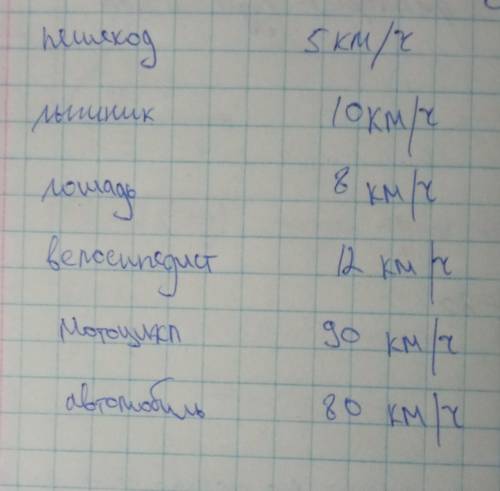 пешеход 5 км/ч
лыжник 10 км/ч
лошадь 8 км/ч
велосипедист 12 км/ч
мотоцикл 90 км/ч
автомобиль 80 км/ч